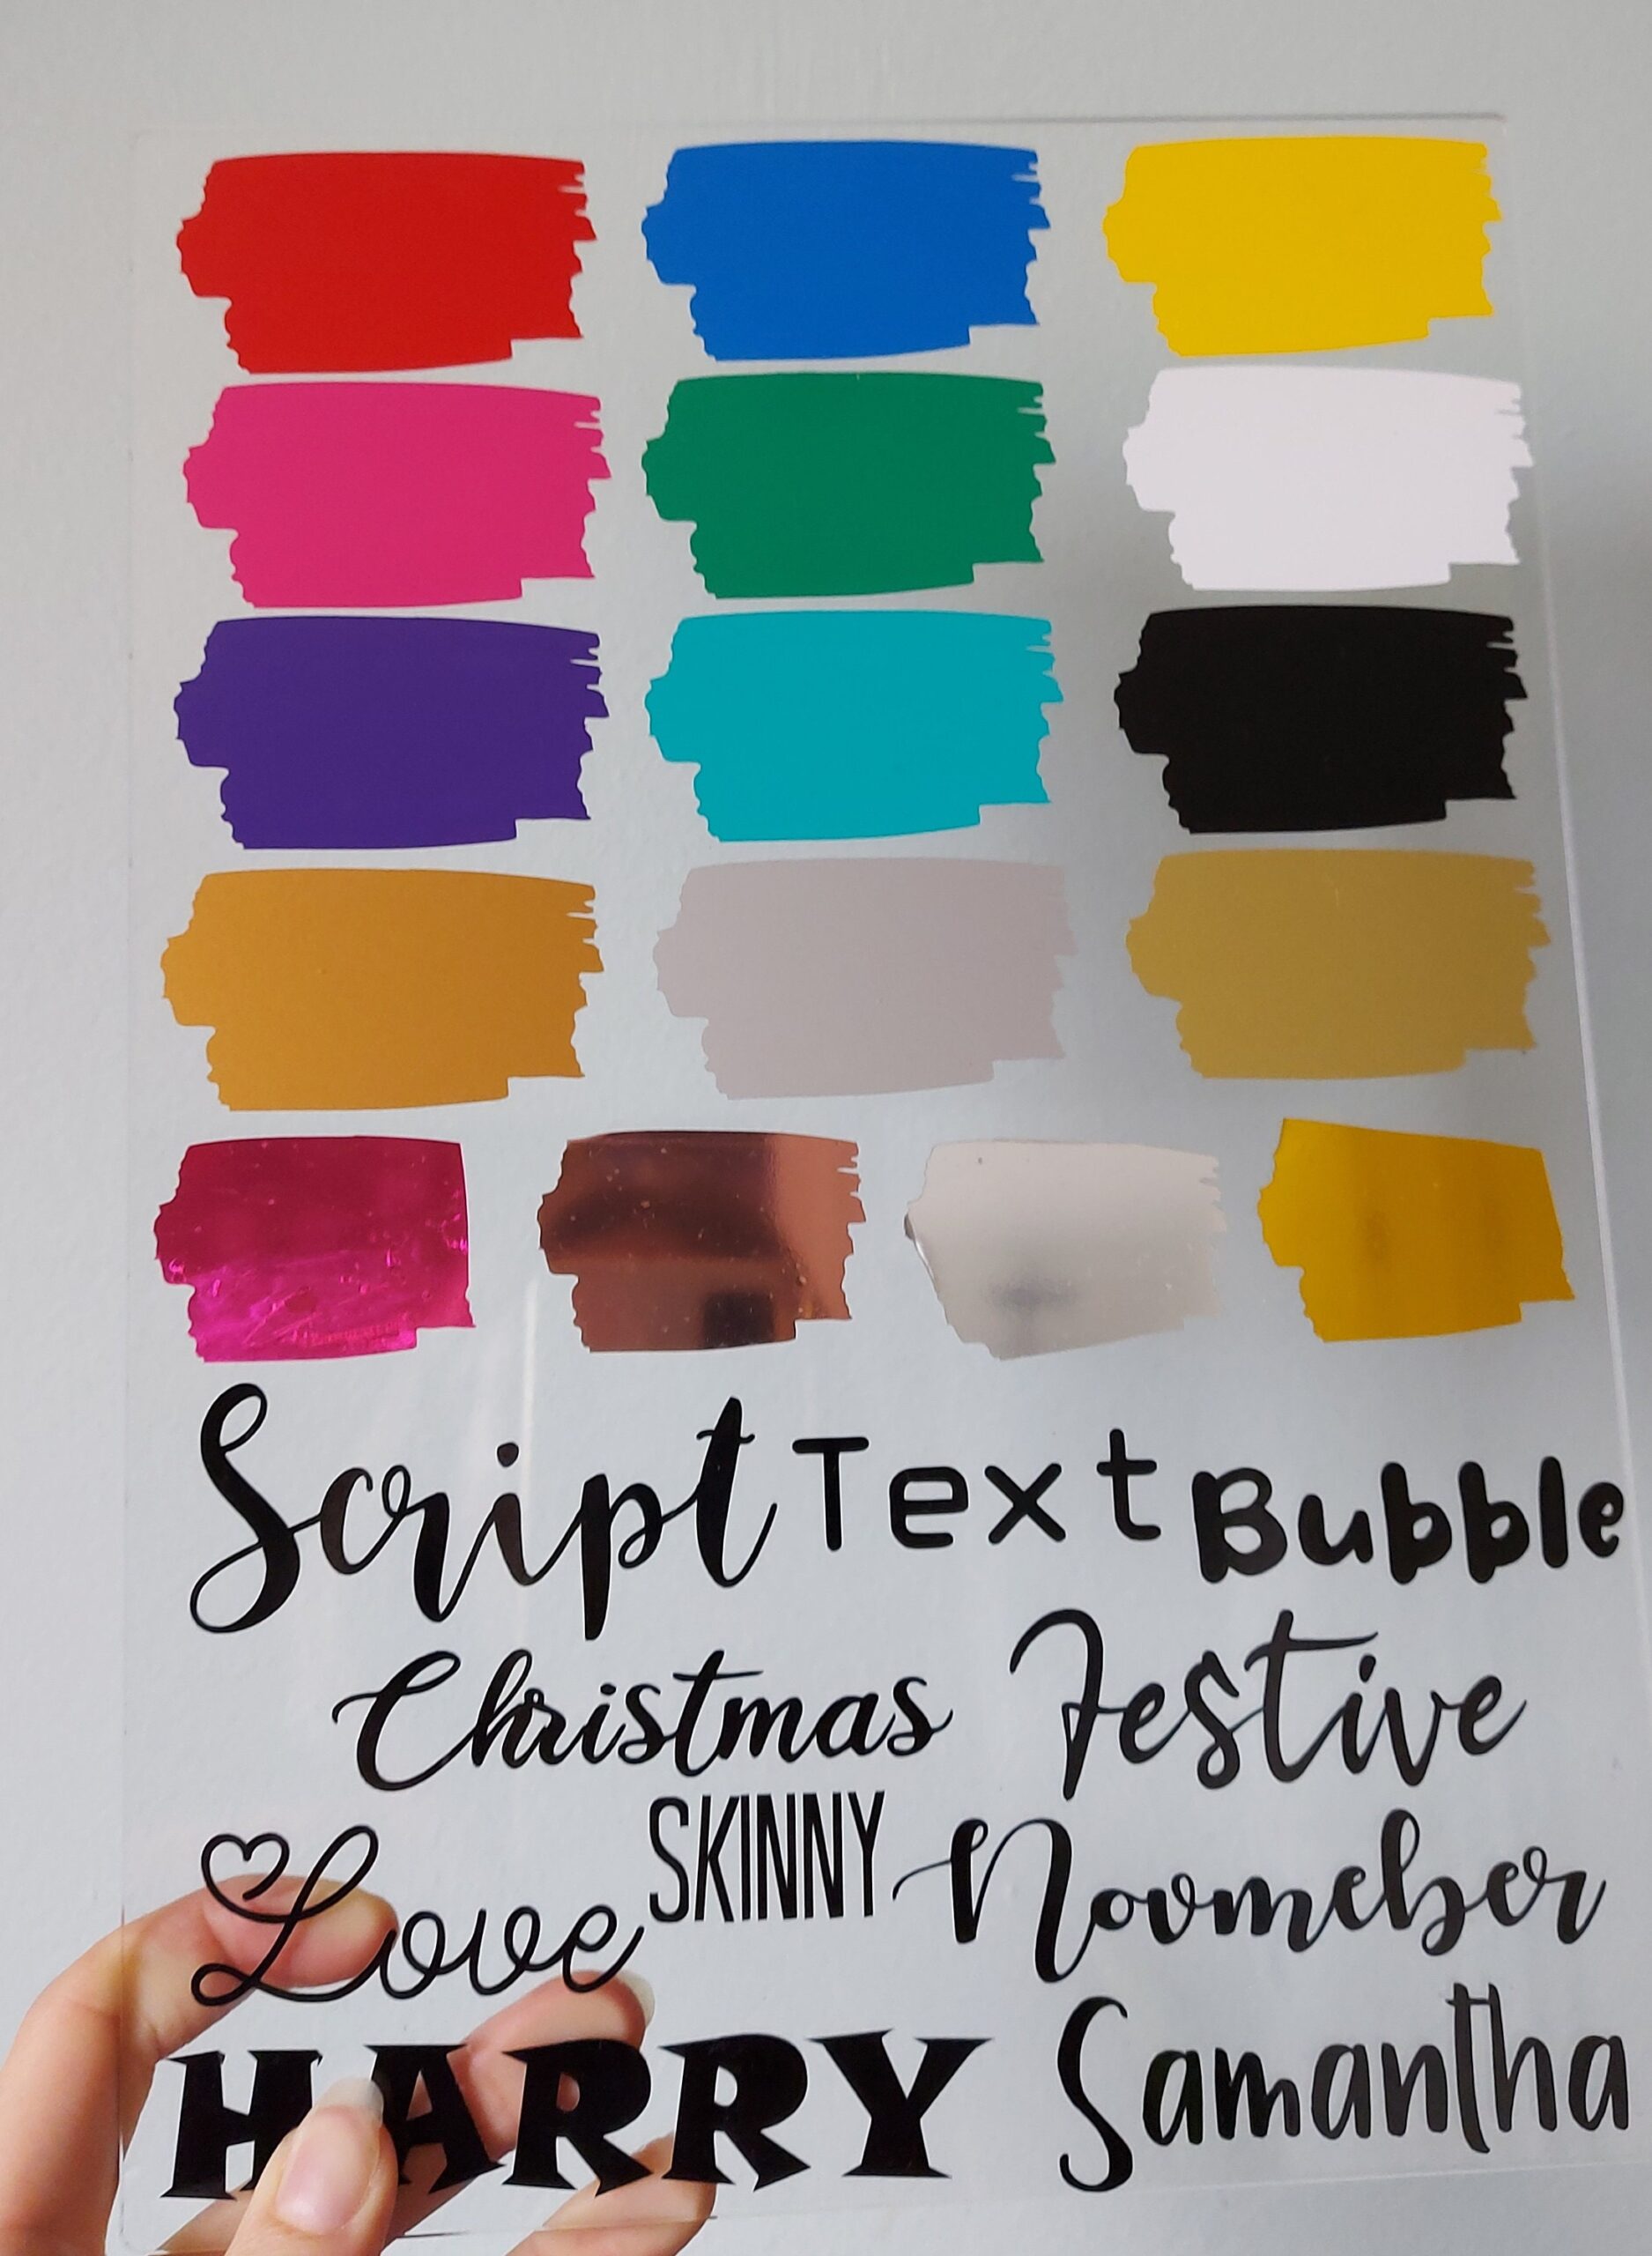 Script Text Bubble
Christmas Festive
Love SKINNY Novmeber
HARRY Samantha